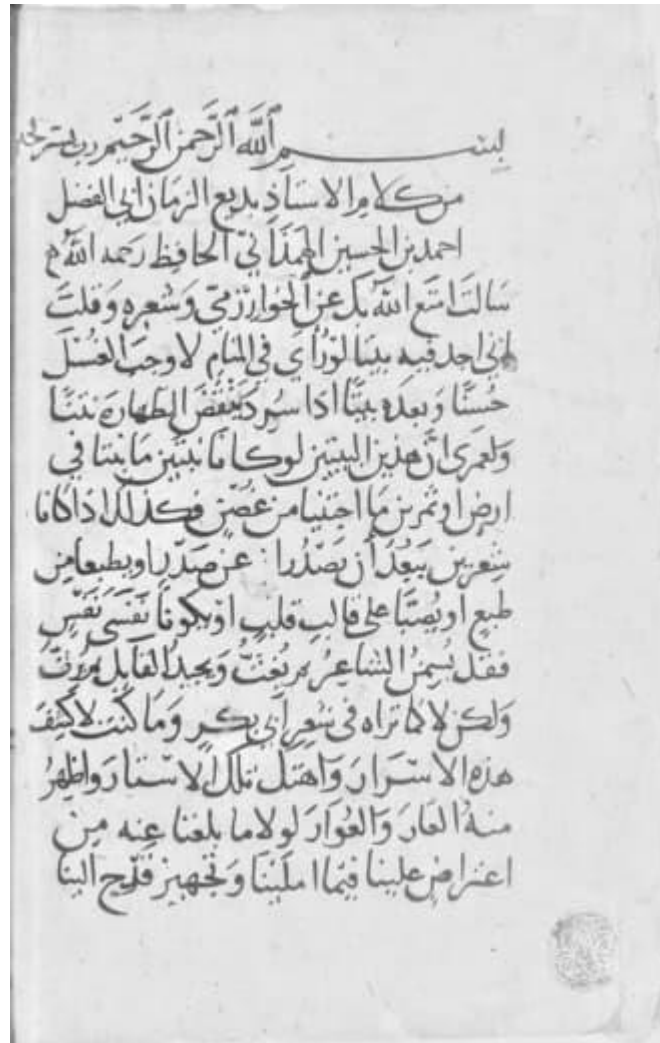 بسم الله الرحمن الرحيم رب يسر
من كلام الاستاذ بديع الزمان ابي الفضل
احمد بن الحسين الهمذاني الحافظ رحمه الله
سالت امتع الله بك عن الخوارزمي وشعره وقلت
اني اجد فيه بيتا لو راى في المنام لاوجب الغسل
حسنا وبعده بيتا اذا سرد ينقض الطهارة نتنا
ولعمرى ان هذين البيتين لو كانا نبتين ما نبتا في
ارض او ثمرين ما اجتنيا من غصن فكذلك اذا كانا
شعرين يبعد أن يصدرا عن صدر او يطبعا من
طبع او يصبا على قالب قلب او يكونا نفسى نفس
فقد يسمن الشاعر ثم يغث ويجيد القايل ثم يرث
ولكن لا كما تراه في شعر ابي بكر وما كنت لاكشف
هذه الاسرار واهتك تلك الاستار واظهر
منه العار والعوار لولا ما بلغنا عنه من
اعتراض علينا فيما املينا وتجهيز قدح الينا